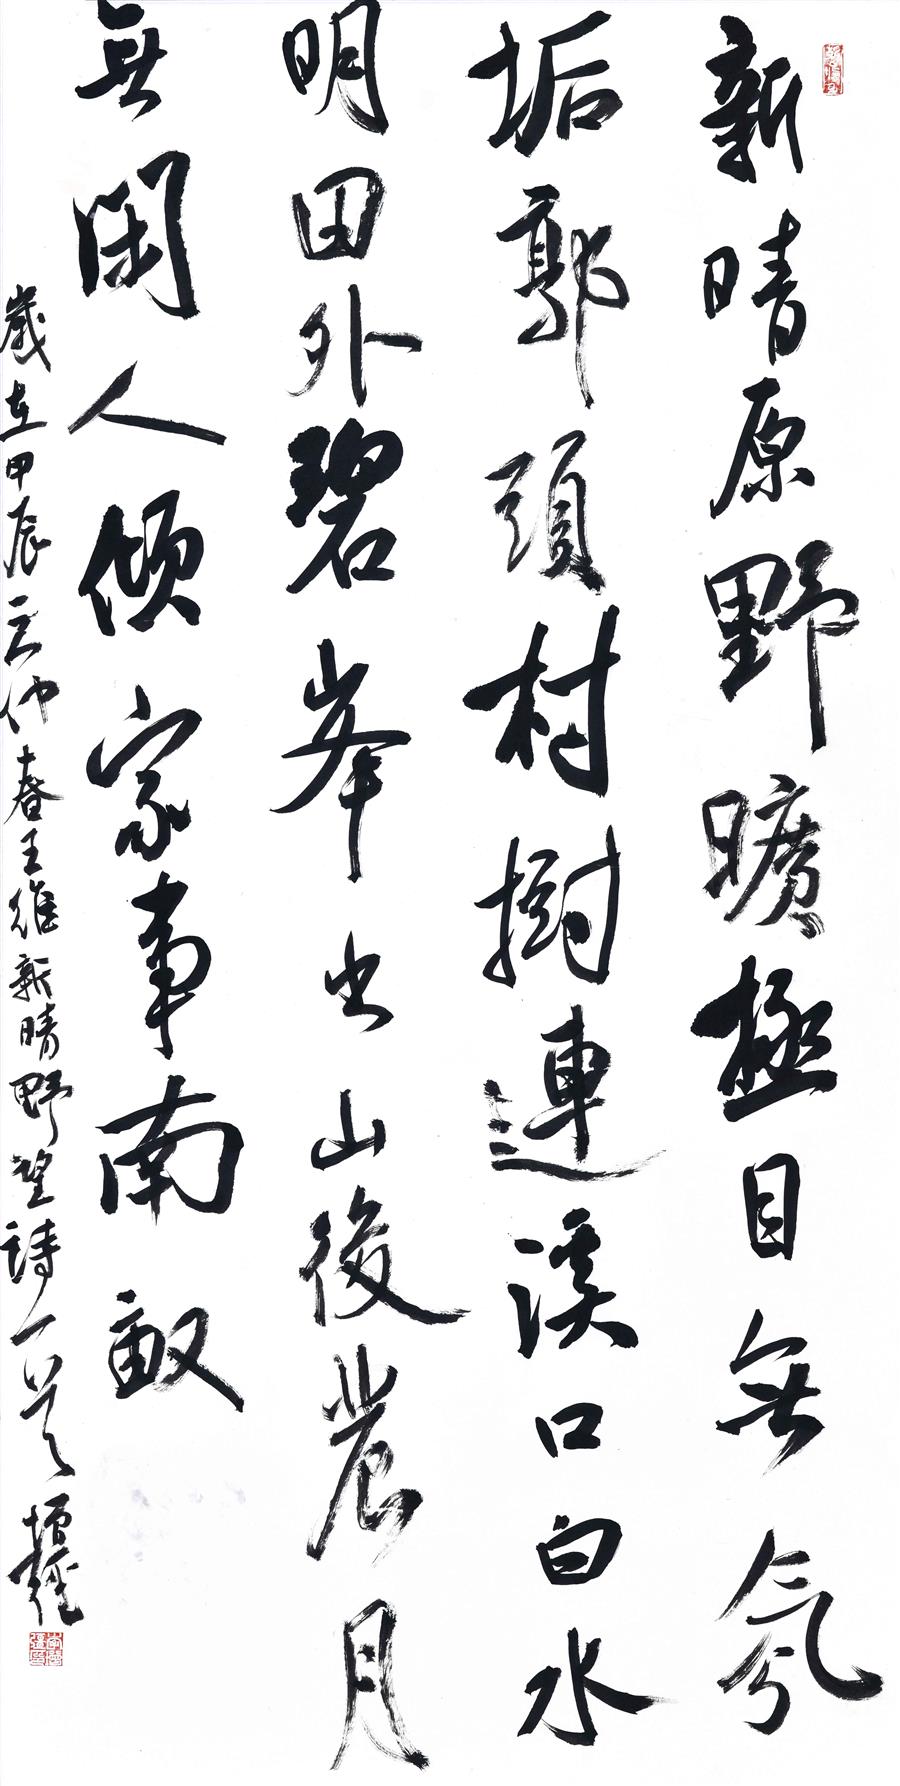 新晴原野曠極目無氛
垢郭頭村樹連溪口白水
明田外碧峯出山後農月
無閑人傾家事南畝
歲在甲辰之仲春王維新晴野望詩一首